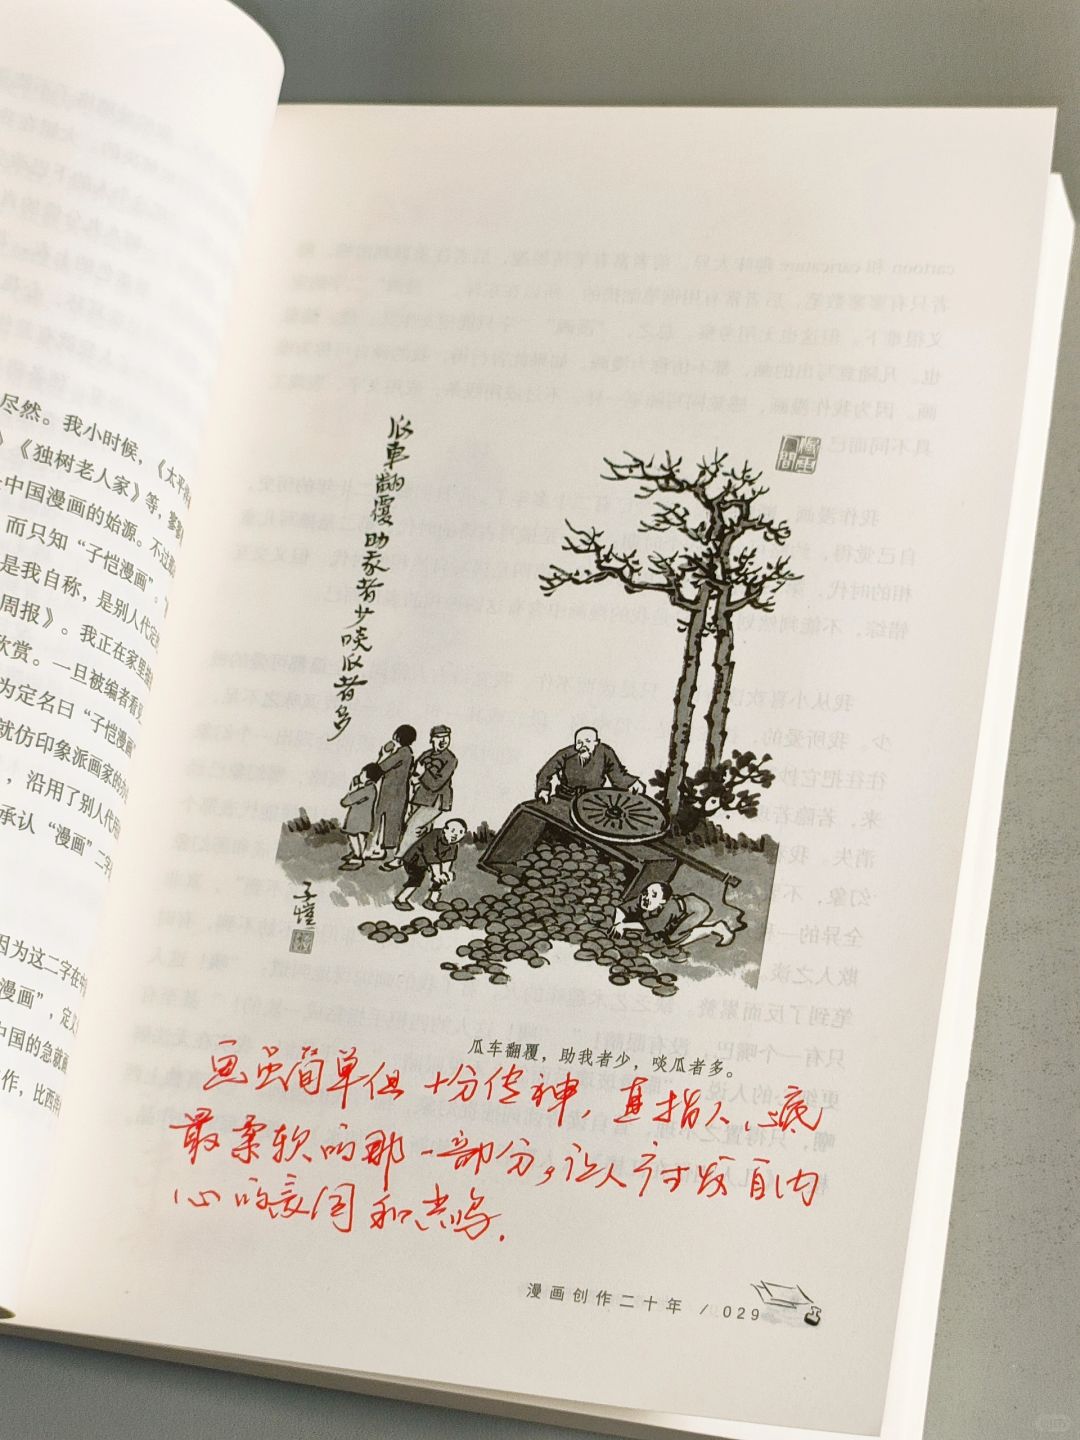 尽然。我小时候，《太平
》《独树老人家》等，寥寥
中国漫画的始源。不过
而只知“子恺漫画”。
是我自称，是别人代定
周报》。我正在家里
欣赏。一旦被编者看
为定名曰“子恺漫画”
就仿印象派画家的
，沿用了别人代用
承认“漫画”二字
因为这二字在中
漫画”，定义
中国的急就画
作，比西
瓜車翻覆助我者少啖瓜者多
子愷
瓜车翻覆，助我者少，啖瓜者多。
画虽简单但十分传神，直指人心底
最柔软的那一部分，让人发自内
心的同和共鸣.
漫画创作二十年 / 029